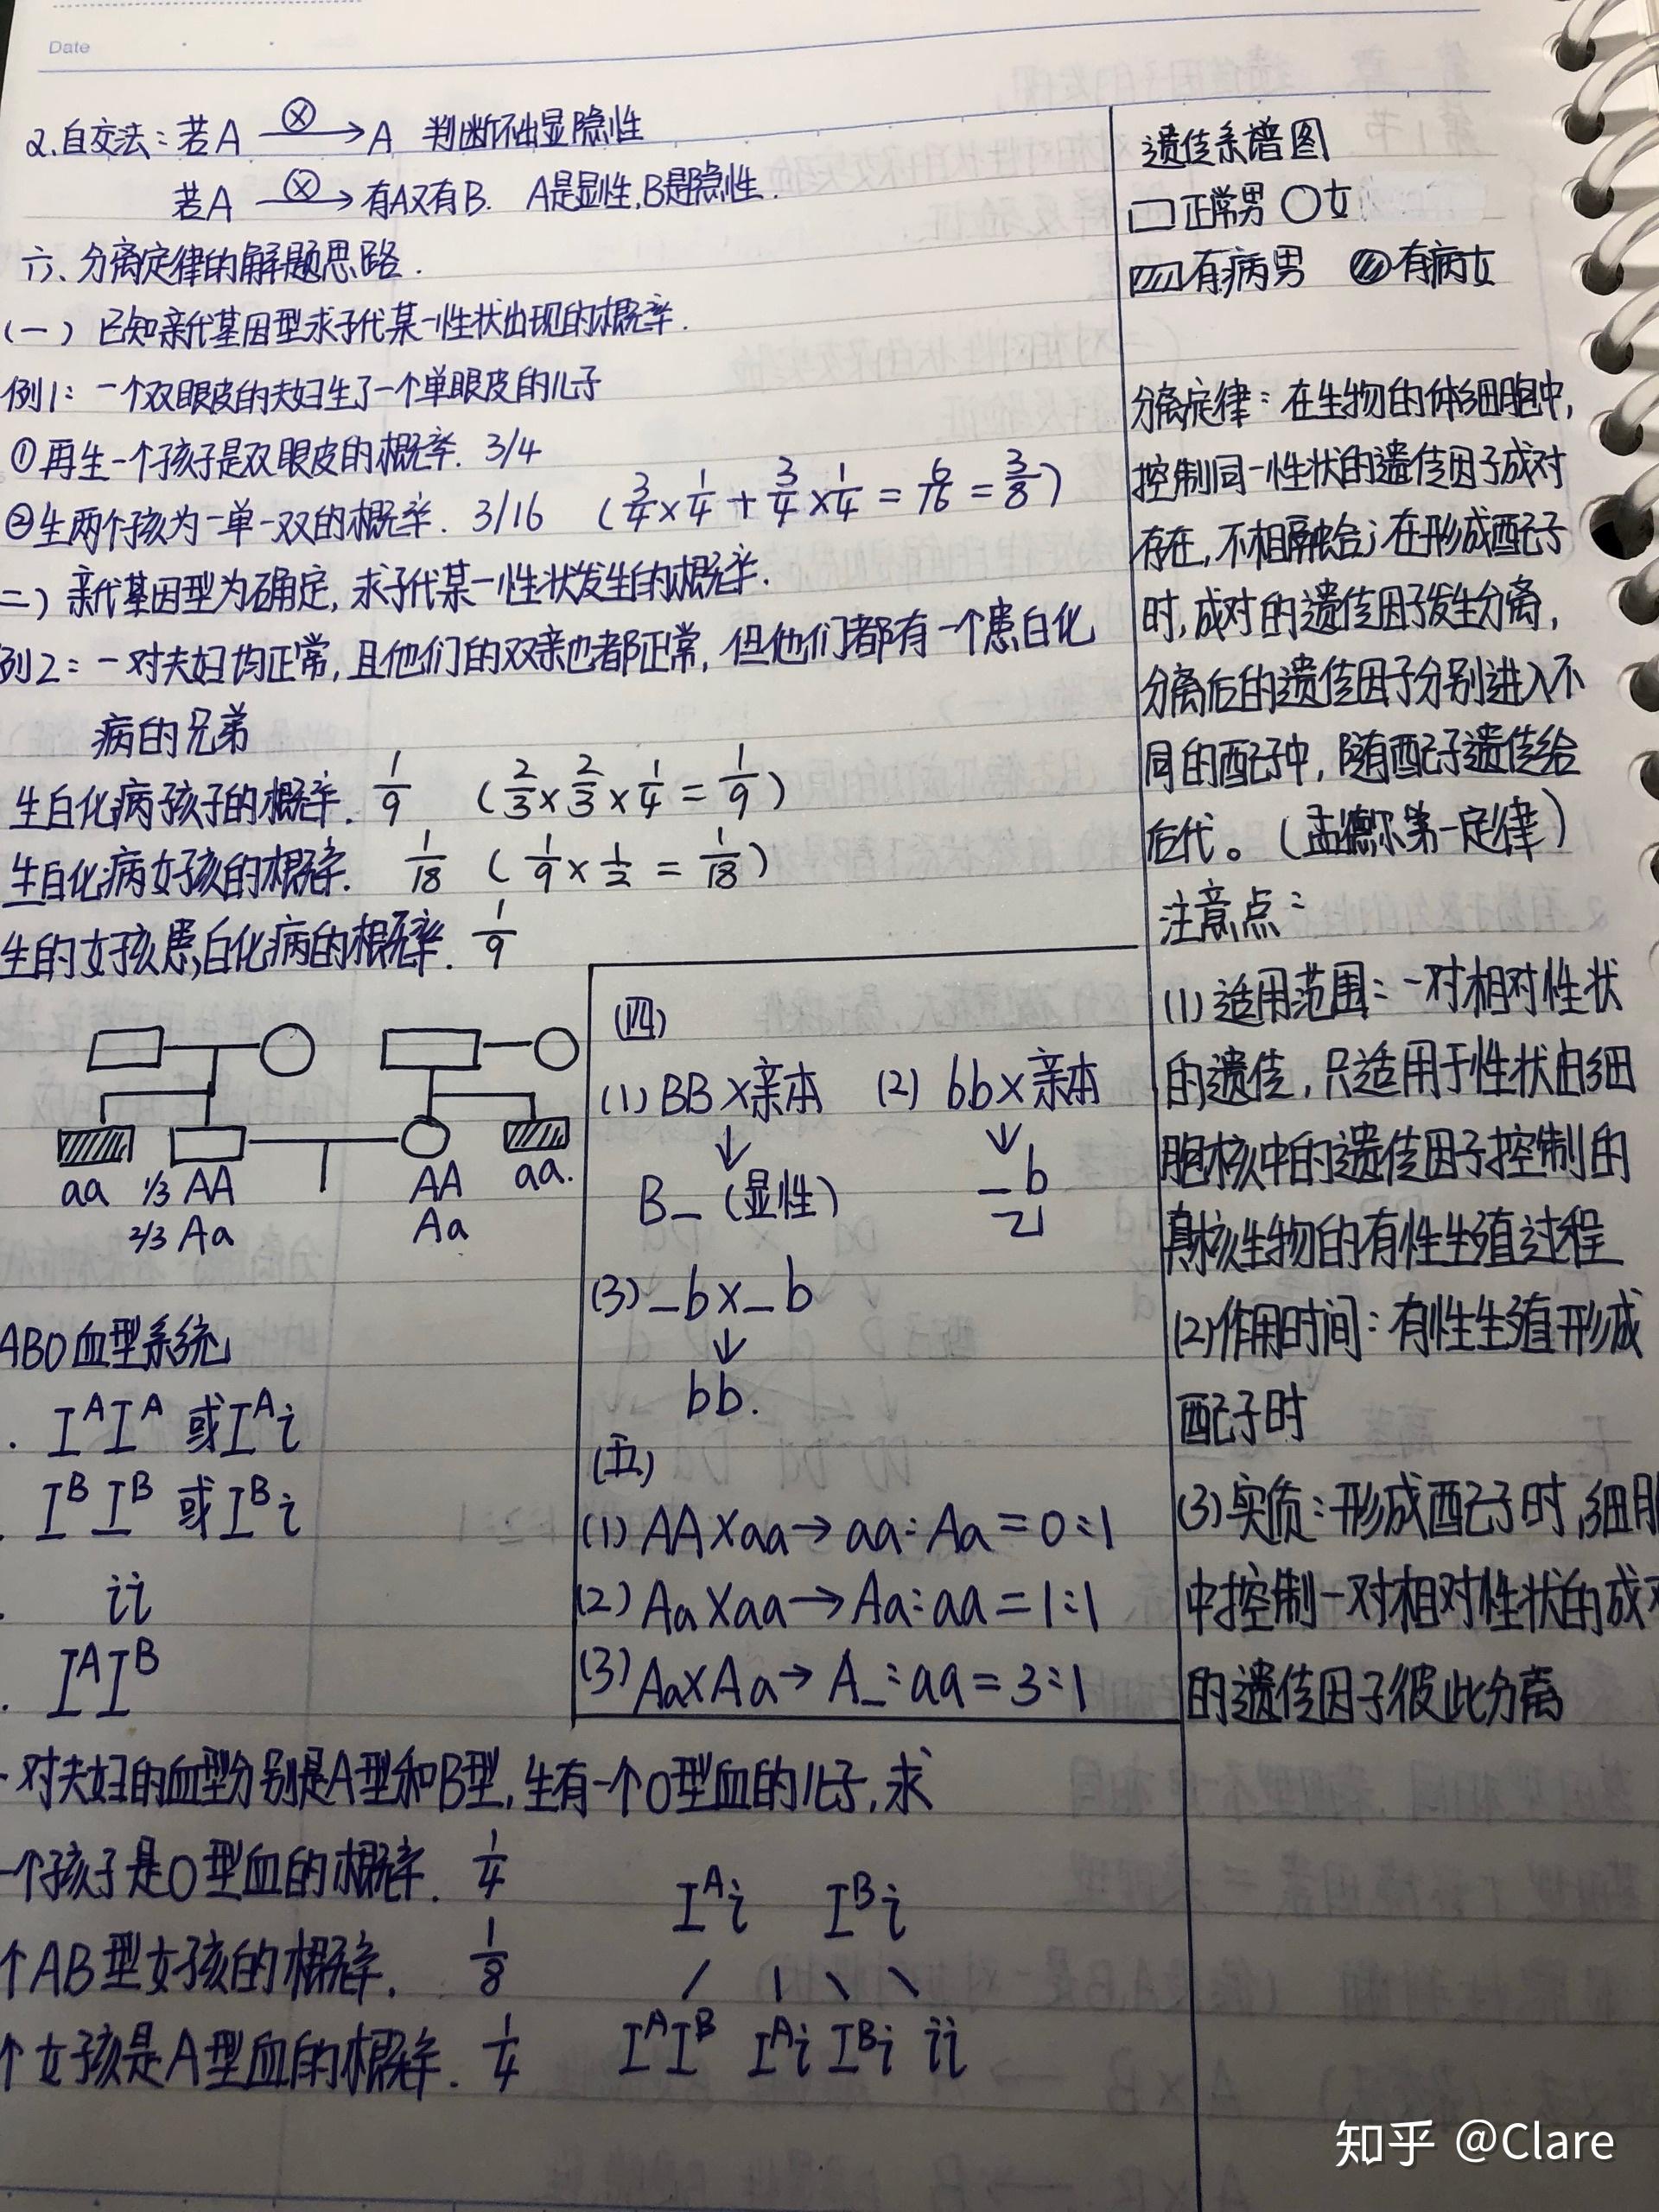 Date
2.自交法：若A ⊗→ A 判断不出显隐性
若A ⊗→ 有A又有B. A是显性,B是隐性.
六、分离定律的解题思路.
(一) 已知亲代基因型求子代某一性状出现的概率.
例1: 一个双眼皮的夫妇生了一个单眼皮的儿子
①再生一个孩子是双眼皮的概率. 3/4
②生两个孩为一单一双的概率. 3/16 (3/4×1/4+3/4×1/4=6/16=3/8)
二) 亲代基因型为确定, 求子代某一性状发生的概率.
例2: 一对夫妇均正常, 且他们的双亲也都正常, 但他们都有一个患白化
病的兄弟
生白化病孩子的概率. 1/9 (2/3×2/3×1/4=1/9)
生白化病女孩的概率. 1/18 (1/9×1/2=1/18)
生的女孩患白化病的概率. 1/9
aa 1/3 AA AA aa.
2/3 Aa Aa
ABO血型系统
. IᴬIᴬ 或Iᴬi
. IᴮIᴮ 或Iᴮi
. ii
. IᴬIᴮ
(四)
(1) BB×亲本 (2) bb×亲本
↓ ↓
B_ (显性) _b
(3) _b×_b
↓
bb.
(五)
(1) AA×aa→aa:Aa=0:1
(2) Aa×aa→Aa:aa=1:1
(3) Aa×Aa→A_:aa=3:1
一对夫妇的血型分别是A型和B型, 生有一个O型血的儿子, 求
一个孩子是O型血的概率. 1/4
个AB型女孩的概率. 1/8
个女孩是A型血的概率. 1/4
Iᴬi Iᴮi
IᴬIᴮ Iᴬi Iᴮi ii
遗传系谱图
□正常男 ○女
▨有病男 ◍有病女
分离定律: 在生物的体细胞中,
控制同一性状的遗传因子成对
存在, 不相融合; 在形成配子
时, 成对的遗传因子发生分离,
分离后的遗传因子分别进入不
同的配子中, 随配子遗传给
后代。(孟德尔第一定律)
注意点:
(1) 适用范围: 一对相对性状
的遗传, 只适用于性状由细
胞核中的遗传因子控制的
真核生物的有性生殖过程
(2)作用时间: 有性生殖形成
配子时
(3)实质: 形成配子时, 细胞
中控制一对相对性状的成对
的遗传因子彼此分离
知乎 @Clare